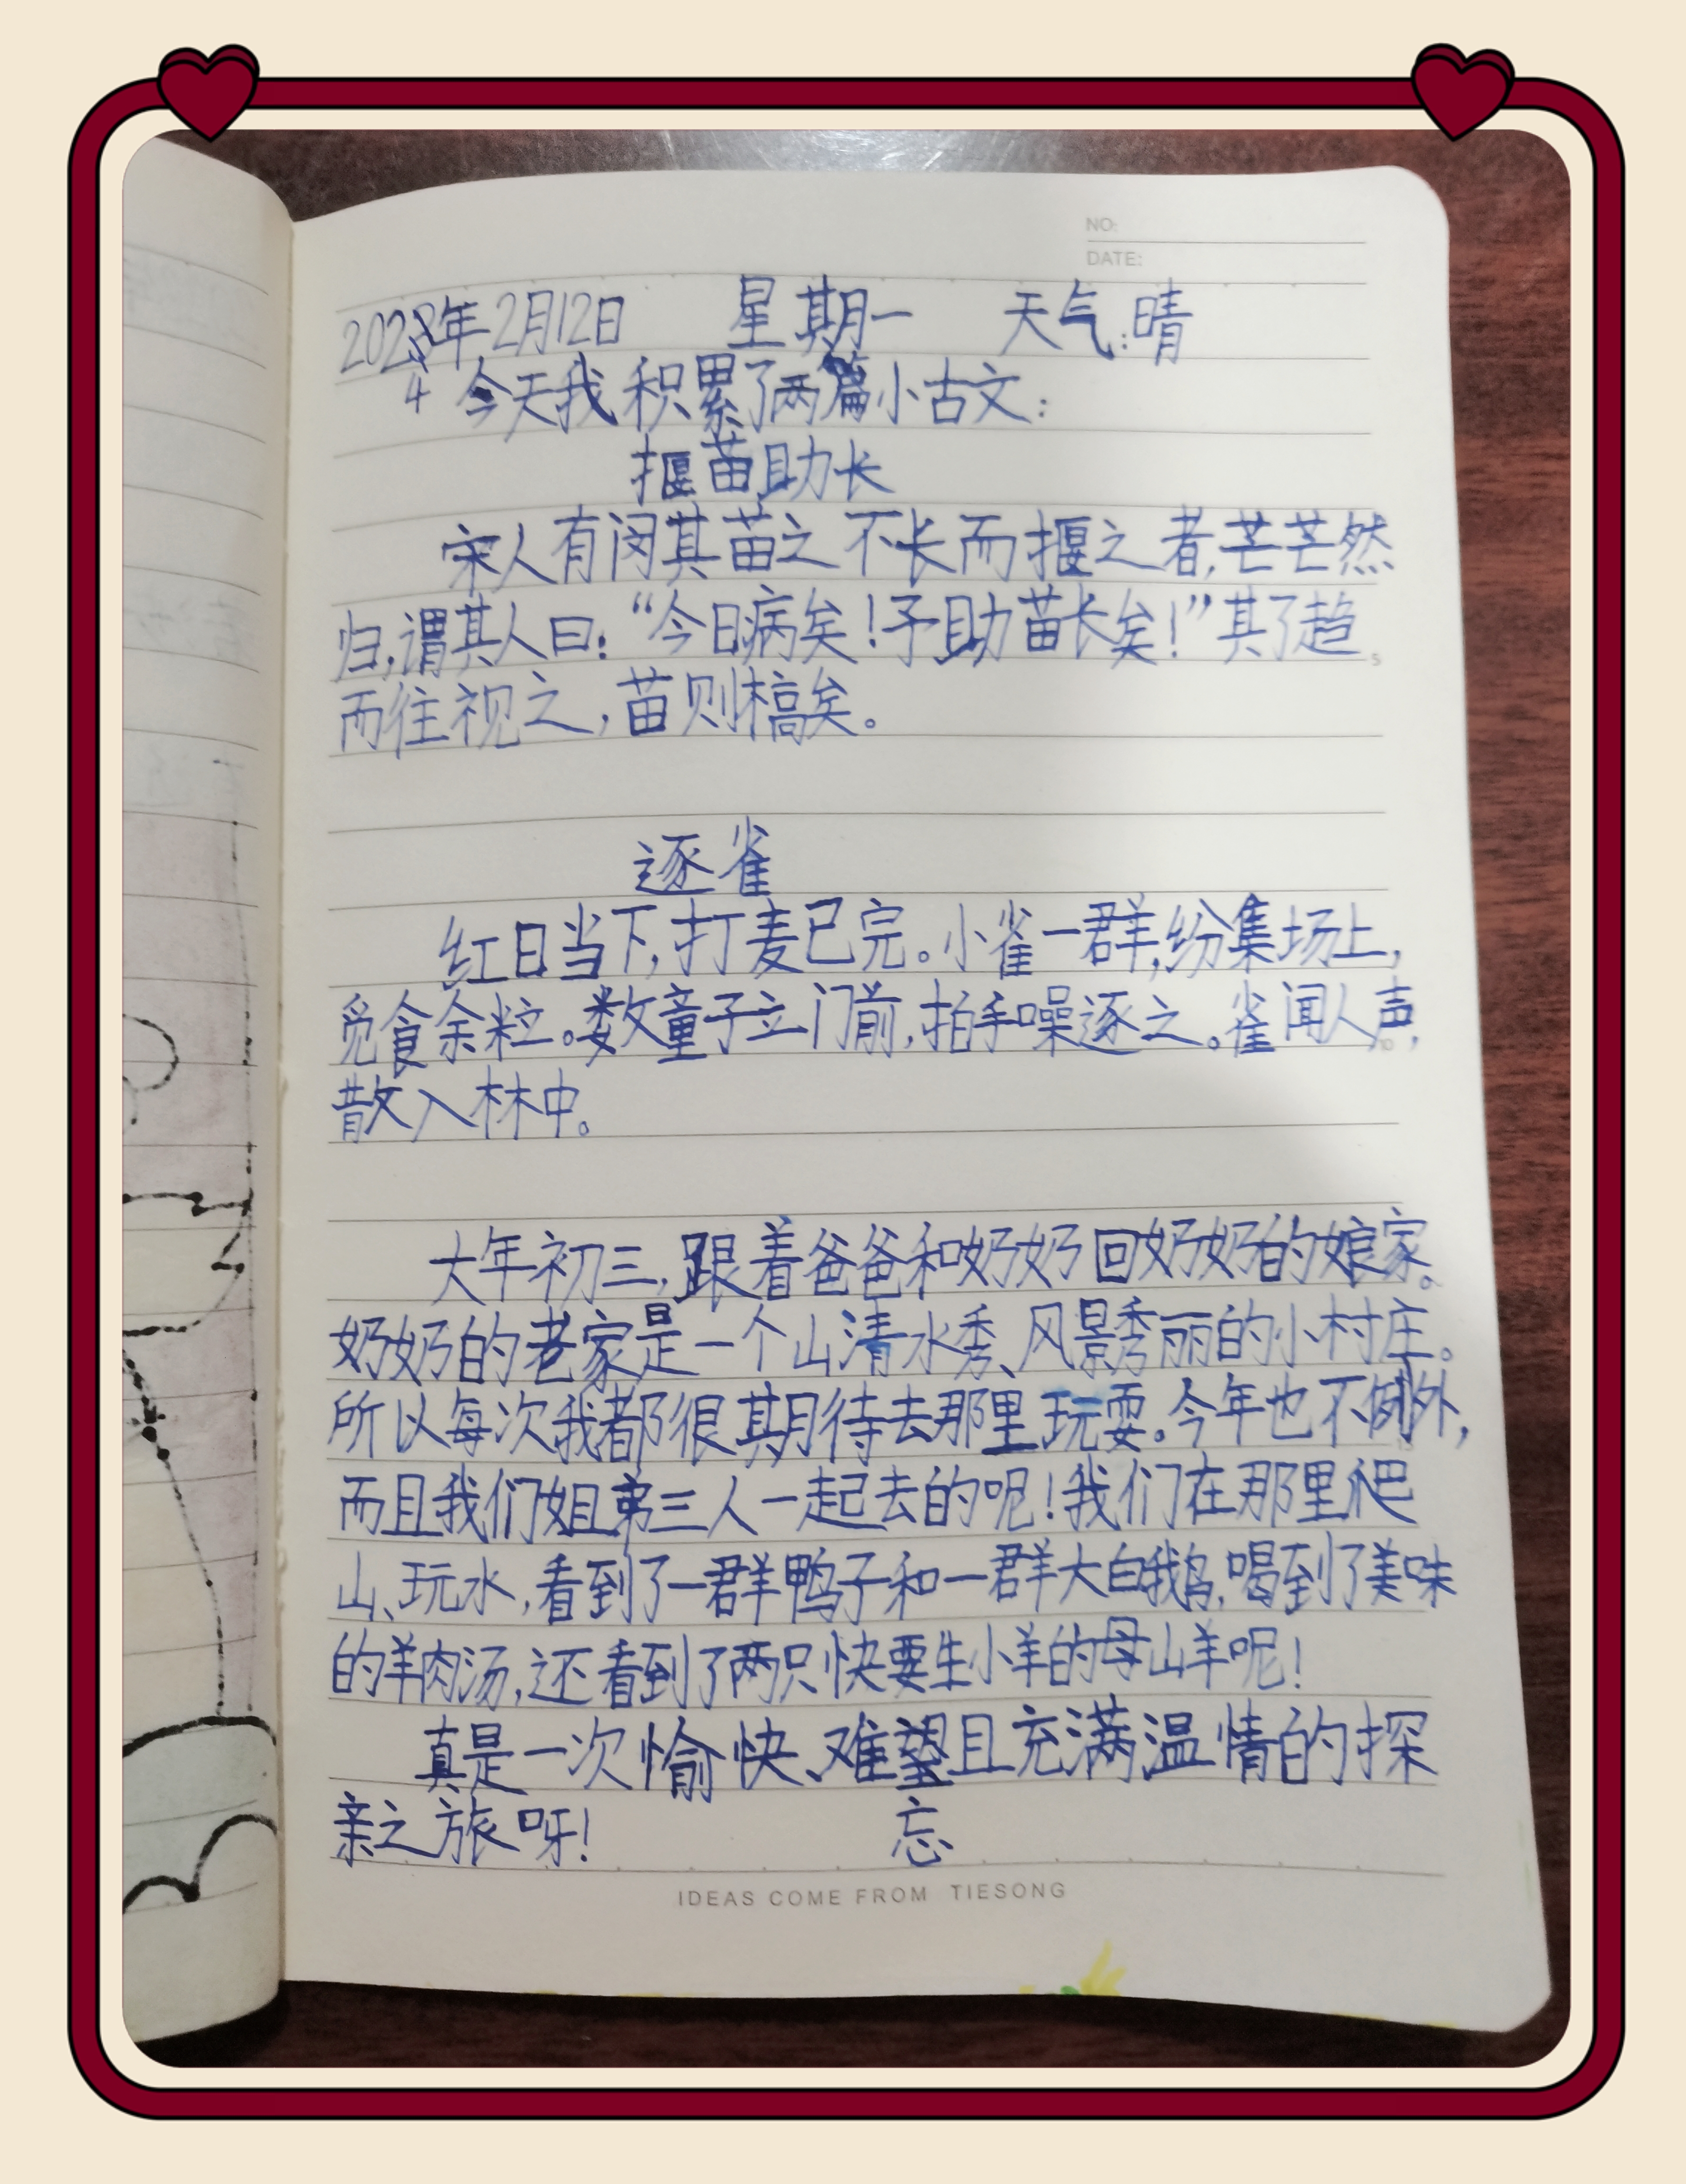 NO:
DATE:
2024年2月12日 星期一 天气:晴
今天我积累了两篇小古文:
揠苗助长
宋人有闵其苗之不长而揠之者,芒芒然
归,谓其人曰:“今日病矣!予助苗长矣!”其子趋
而往视之,苗则槁矣。
逐雀
红日当下,打麦已完。小雀一群,纷集场上,
觅食余粒。数童子立门前,拍手噪逐之。雀闻人声,
散入林中。
大年初三,跟着爸爸和奶奶回奶奶的娘家。
奶奶的老家是一个山清水秀、风景秀丽的小村庄。
所以每次我都很期待去那里玩耍。今年也不例外,
而且我们姐弟三人一起去的呢!我们在那里爬
山、玩水,看到了一群鸭子和一群大白鹅,喝到了美味
的羊肉汤,还看到了两只快要生小羊的母山羊呢!
真是一次愉快、难望且充满温情的探
忘
亲之旅呀!
IDEAS COME FROM TIESONG